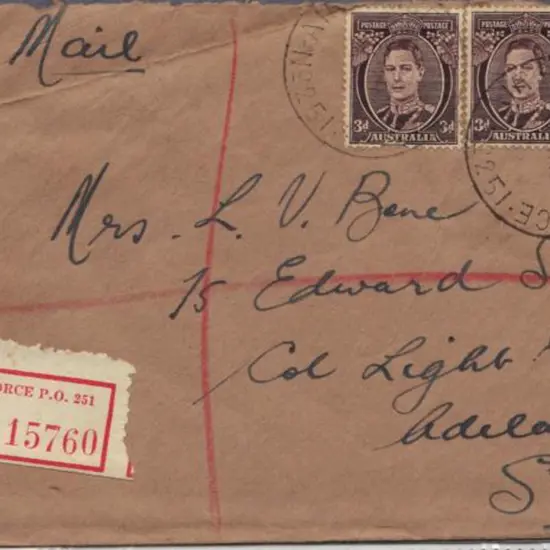 Mail
POSTAGE POSTAGE
3d 3d
AUSTRALIA
POSTAGE POSTAGE
3d
AUSTRALIA
Mrs. L. V. Bene
15 Edward S
Col Light
Adela
S
ORCE P.O. 251
15760